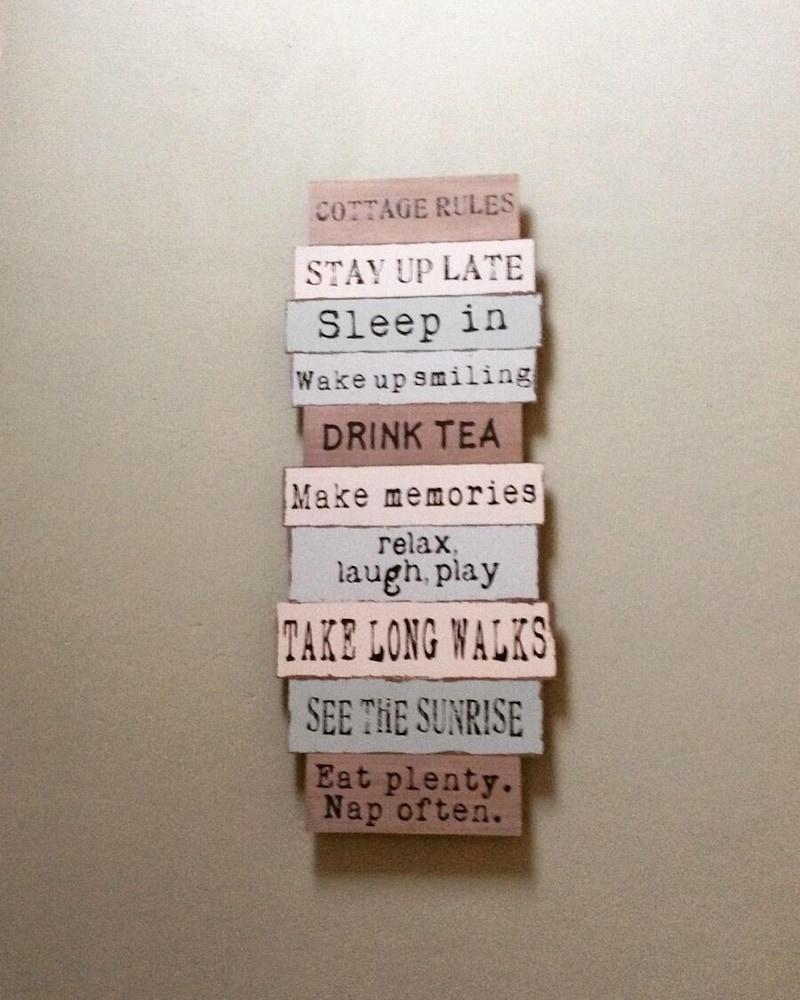 COTTAGE RULES
STAY UP LATE
Sleep in
Wake up smiling
DRINK TEA
Make memories
relax,
laugh, play
TAKE LONG WALKS
SEE THE SUNRISE
Eat plenty.
Nap often.